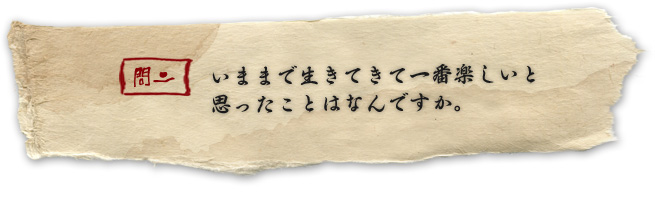 問一
いままで生きてきて一番楽しいと
思ったことはなんですか。